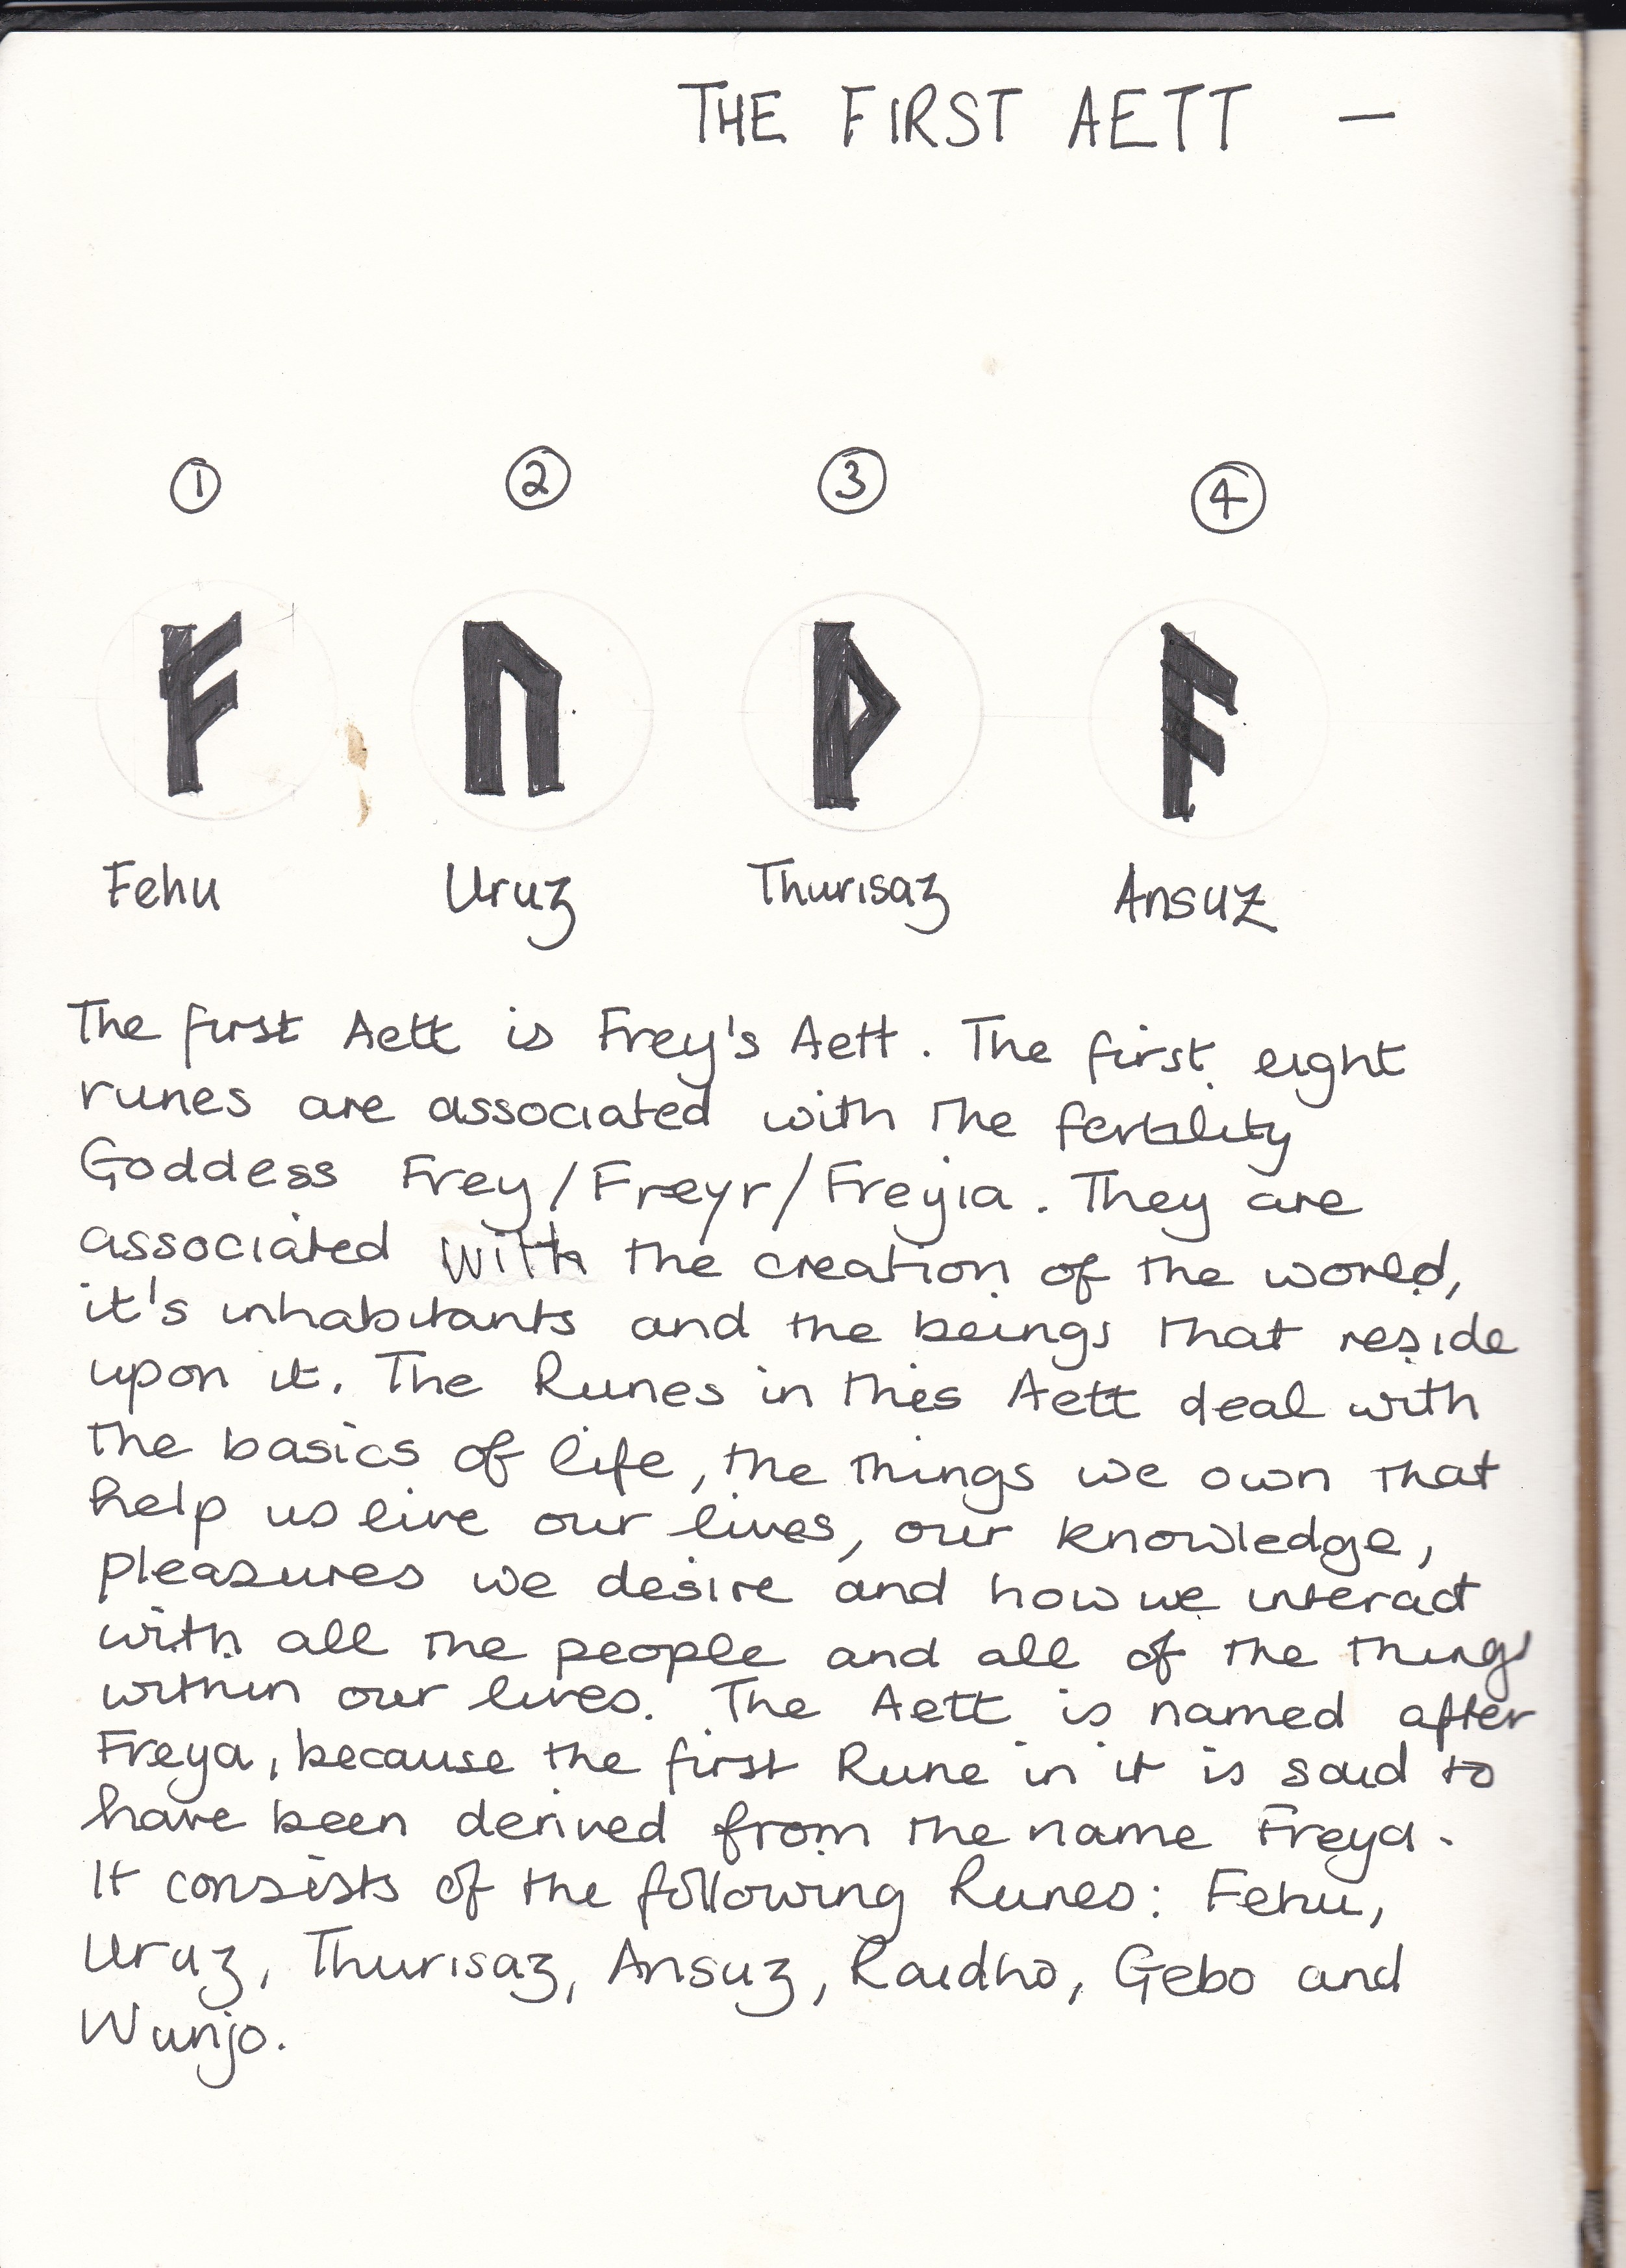 THE FIRST AETT —
① ② ③ ④
ᚠ ᚢ ᚦ ᚨ
Fehu Uruz Thurisaz Ansuz
The first Aett is Frey's Aett. The first eight
runes are associated with the fertility
Goddess Frey/Freyr/Freyia. They are
associated with the creation of the world,
it's inhabitants and the beings that reside
upon it. The Runes in this Aett deal with
the basics of life, the things we own that
help us live our lives, our knowledge,
pleasures we desire and how we interact
with all the people and all of the things
within our lives. The Aett is named after
Freya, because the first Rune in it is said to
have been derived from the name Freya.
It consists of the following Runes: Fehu,
Uruz, Thurisaz, Ansuz, Raidho, Gebo and
Wunjo.